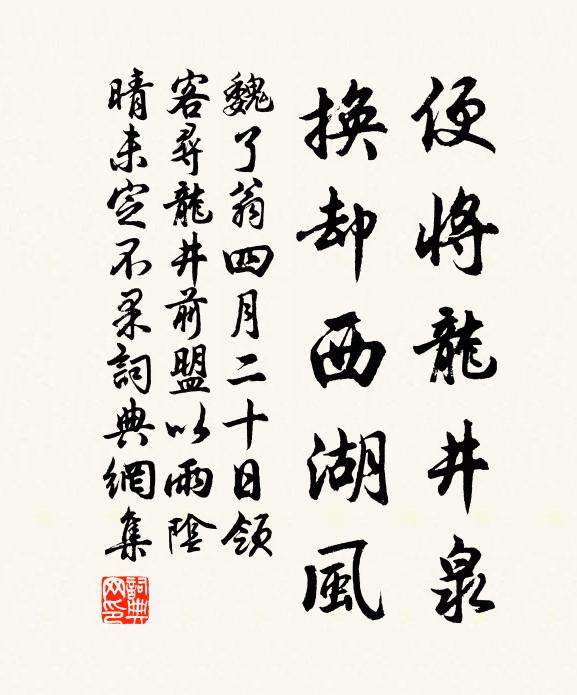 便將龍井泉
換却西湖風
魏了翁四月二十日領
客尋龍井前盟以雨陰
晴未定不果詞典網集
詞典
网印